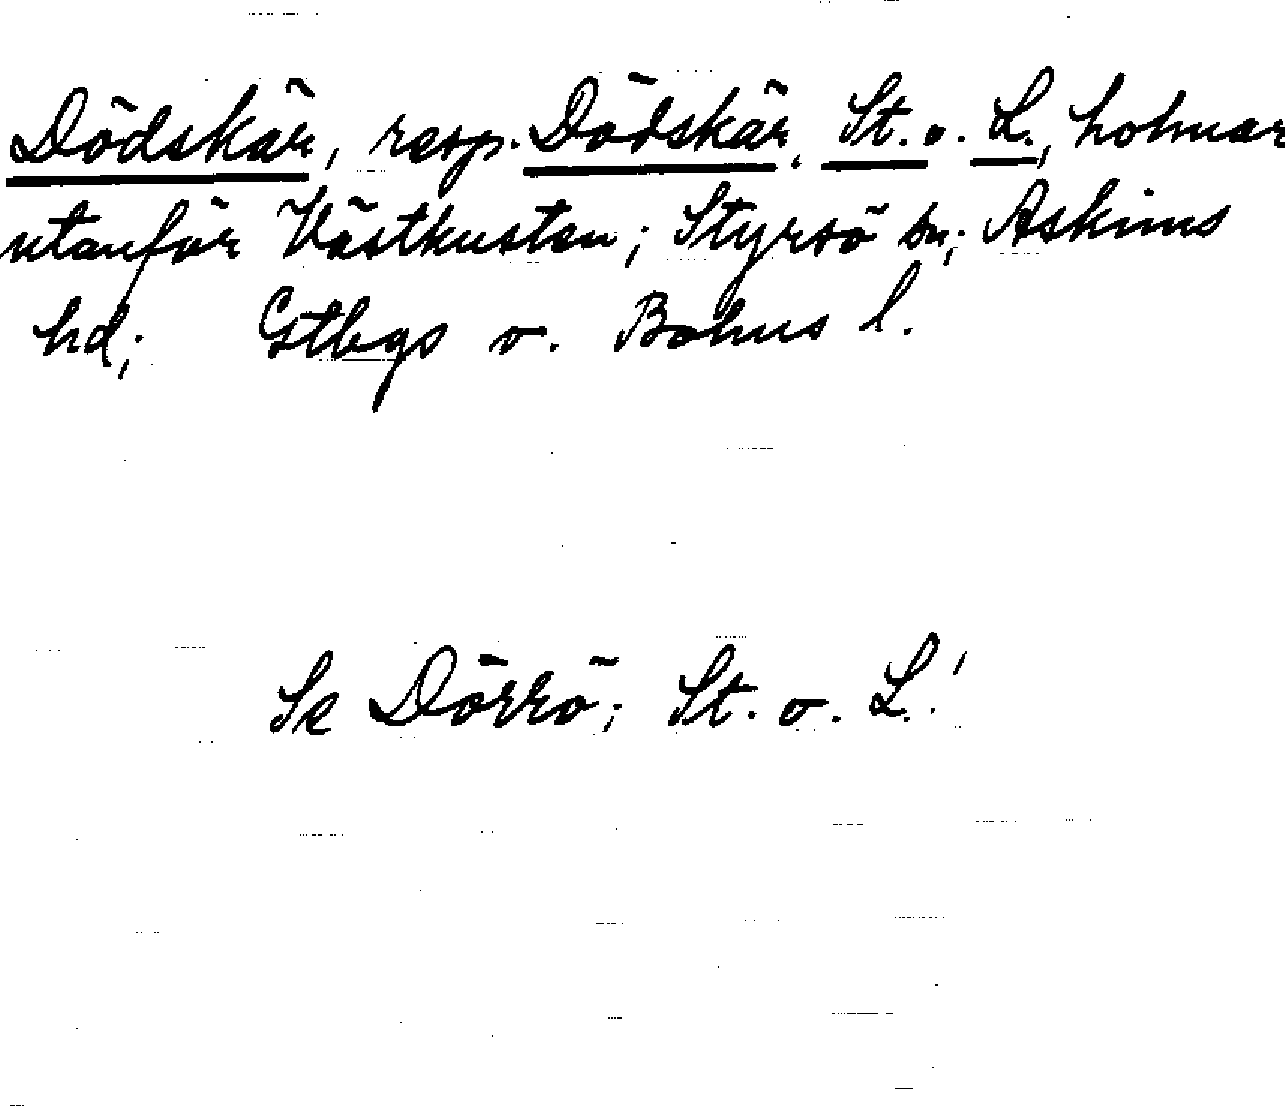 Dödskär, resp. Dödskär, St. o. L., holmar
utanför Västkusten; Styrsö sn; Askims
hd; Gtbgs o. Bohus l.
Se Dörrö; St. o. L.!